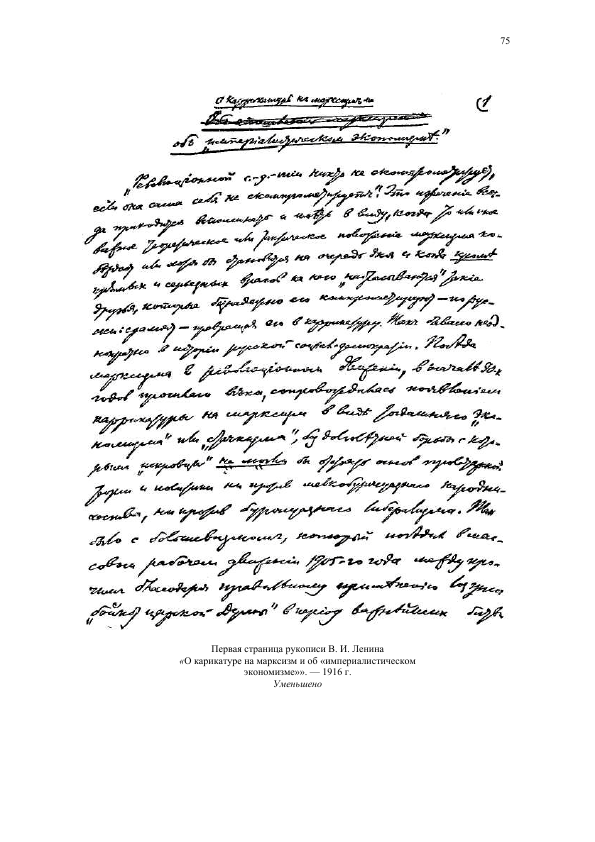 75
О каррикатурѣ на марксизмъ и
(1
объ „империалистическом экономизмѣ."
„Революціонной с.-д.-тіи никто не скомпрометируетъ,
если она сама себя не скомпрометируетъ". Это изреченіе все-
гда приходится вспоминать и имѣть в виду, когда то или иное
важное теоретическое или тактическое положеніе марксизма по-
бѣждает или хотя бы становится на очередь дня и когда кромѣ
прямых и серьезных врагов на него „набрасываются" такіе
друзья, которые безнадежно его компрометируют — по рус-
ски: срамят — превращая его в каррикатуру. Так бывало неод-
нократно в исторіи русской соціал-демократіи. Побѣда
марксизма в революціонном движеніи, в началѣ 90х
годов прошлаго вѣка, сопровождалась появленіем
каррикатуры на марксизм в видѣ тогдашняго „эко-
номизма" или „стачкизма", без долголѣтней борьбы с кото-
рым „искровцы" не могли бы отстоять основ пролетарской
теоріи и политики ни против мелкобуржуазнаго народни-
чества, ни против буржуазнаго либерализма. Так
было с большевизмом, который побѣдил в мас-
совом рабочем движеніи 1905-го года между про-
чим благодаря правильному примѣненію лозунга
„бойкот царской Думы" в період важнѣйших битв
Первая страница рукописи В. И. Ленина
«О карикатуре на марксизм и об «империалистическом
экономизме»». — 1916 г.
Уменьшено